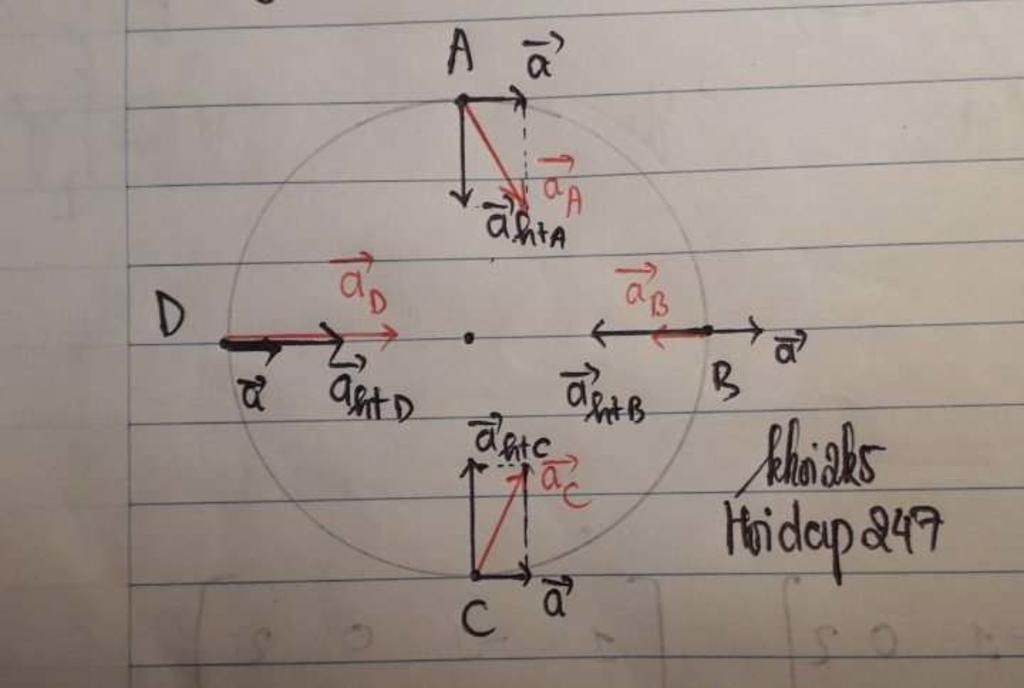 A
a⃗
a⃗_A
a⃗_htA
D
a⃗_D
a⃗_B
a⃗
a⃗_htD
a⃗_htB
B
a⃗
a⃗_htC
a⃗_C
khoi2k5
Hoidap247
a⃗
C